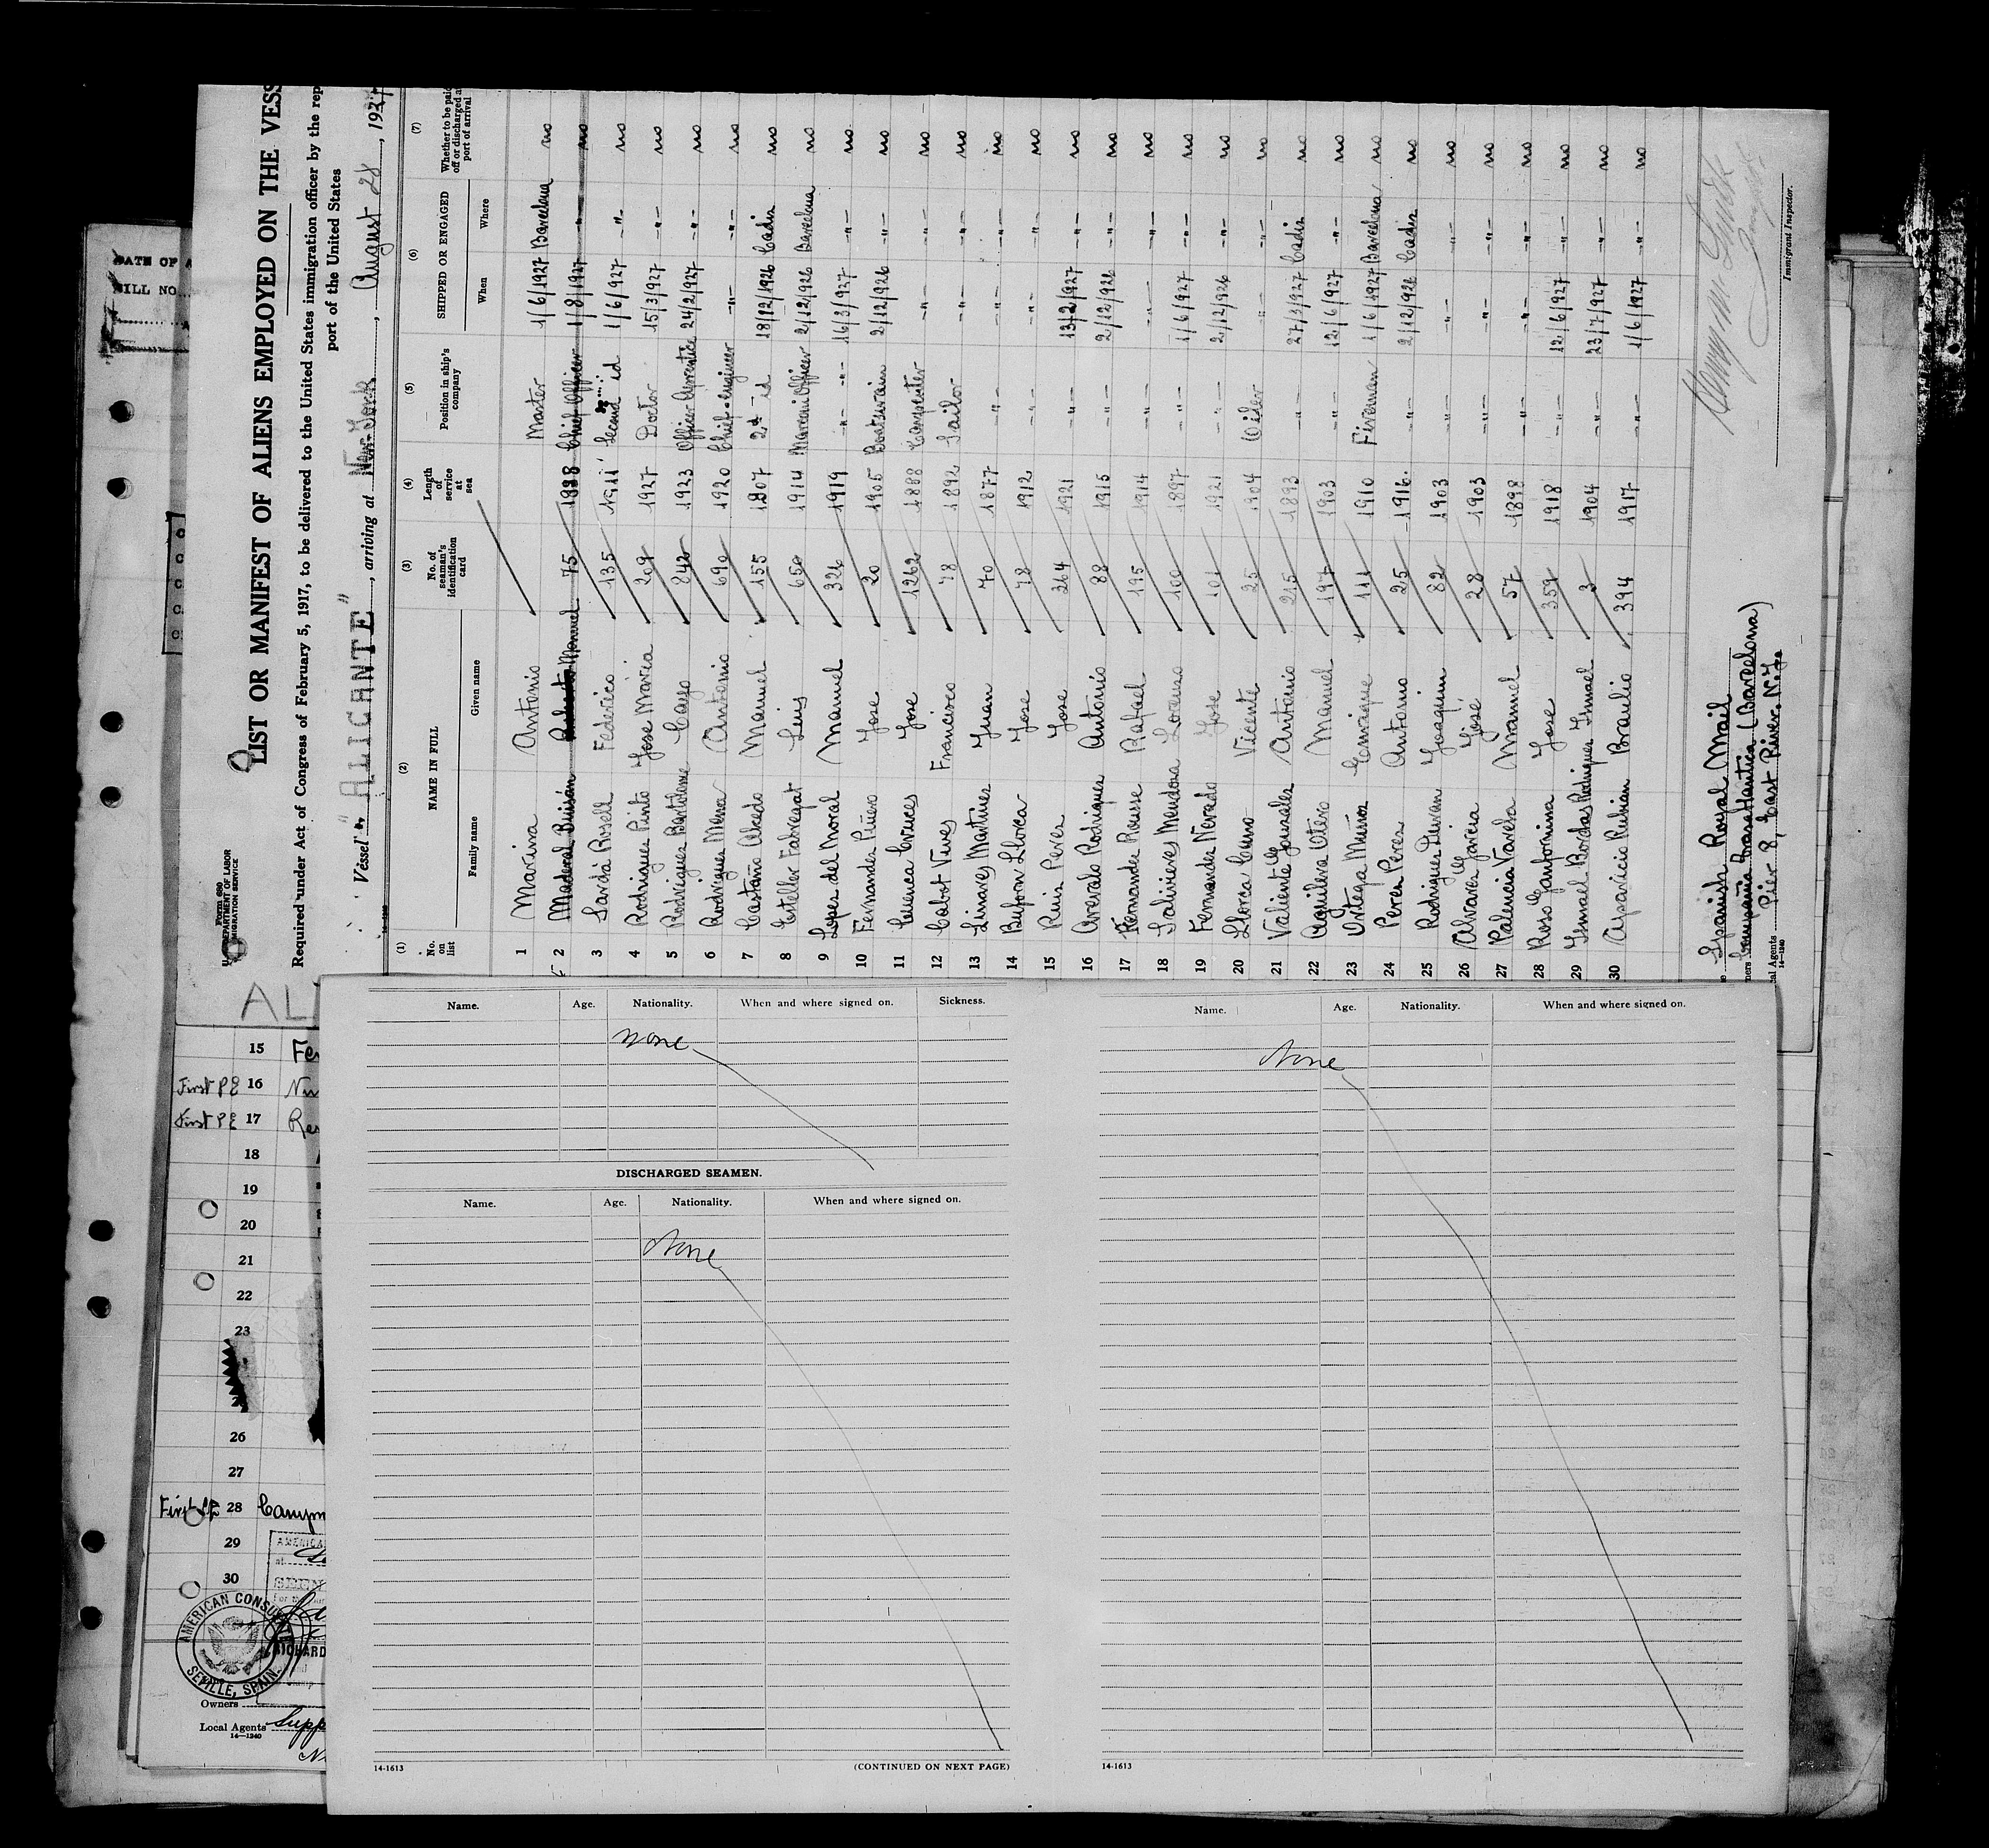 Form 680
U.S. DEPARTMENT OF LABOR
IMMIGRATION SERVICE
LIST OR MANIFEST OF ALIENS EMPLOYED ON THE VESS
Required under Act of Congress of February 5, 1917, to be delivered to the United States immigration officer by the rep
port of the United States
Vessel "ALICANTE", arriving at New-York, August 28, 1927
(1) (2) (3) (4) (5) (6) (7)
No. on list NAME IN FULL No. of seaman's identification card Length of service at sea Position in ship's company SHIPPED OR ENGAGED Whether to be paid off or discharged at port of arrival
Family name Given name When Where
1 Marina Antonio Master 1/6/1927 Barcelona no
2 Maderal Buisán Manuel 75 Chief Officer 1/8/1927 -"- no
3 Sardá Rosell Federico 135 1911 Second id 1/6/1927 -"- no
4 Rodriguez Pinto Jose Maria 209 1927 Doctor 15/3/1927 -"- no
5 Rodriguez Bartolome Cayo 842 1923 Officer Aprentice 24/2/1927 -"- no
6 Rodriguez Mena Antonio 690 1920 Chief-engineer -"- -"- no
7 Castaño Acedo Manuel 155 1907 2d id 18/12/1926 Cadiz no
8 Esteller Fabregat Luis 650 1914 Marconi Officer 2/12/926 Barcelona no
9 Lopez del Moral Manuel 326 1919 -"- 16/3/927 -"- no
10 Fernandez Piñero Jose 20 1905 Boatswain 2/12/926 -"- no
11 Cuenca Cruces Jose 1262 1888 Carpenter -"- -"- no
12 Cabot Vives Francisco 78 1892 Sailor -"- -"- no
13 Linares Martinez Juan 70 1877 -"- -"- -"- no
14 Buforn Llorca Jose 78 1912 -"- -"- -"- no
15 Ruiz Perez Jose 264 1921 -"- 13/2/927 -"- no
16 Arevalo Rodriguez Antonio 88 1915 -"- 2/12/926 -"- no
17 Fernandez Rousse Rafael 195 1914 -"- -"- -"- no
18 Salivieres Mendoza 100 1897 -"- 1/6/927 -"- no
19 Fernandez Nevado Jose 101 1921 -"- 2/12/926 -"- no
20 Llorca Cano Vicente 25 1904 Oiler -"- -"- no
21 Valiente Gonzalez Antonio 215 1893 -"- 27/3/927 Cadiz no
22 Aguilera Otero Manuel 197 1903 -"- 12/6/927 -"- no
23 Ortega Muñoz Enrique 111 1910 Fireman 1/6/1927 Barcelona no
24 Perez Perez Antonio 25 1916 -"- 2/12/926 Cadiz no
25 Rodriguez Duran Joaquin 82 1903 -"- -"- -"- no
26 Alvarez Garcia José 28 1903 -"- -"- -"- no
27 Palencia Varela Manuel 57 1898 -"- -"- -"- no
28 Roso Ganfornina Jose 359 1918 -"- 12/6/927 -"- no
29 Ismael Bordas Rodriguez Ismael 3 1904 -"- 23/7/927 -"- no
30 Aparicio Rubian Braulio 394 1917 -"- 1/6/1927 -"- no
Spanish Royal Mail
Compañia Trasatlantica (Barcelona)
Pier 8, East River. N.Y.
ners
al Agents
14-1240
Immigrant Inspector.
DATE OF A
BILL NO.
AL
15 Fe
First PE 16 Nu
First PE 17 Re
18
19
20
21
22
23
26
27
First PE 28 Campm
29
30
AMERICA
at
SEEN
AMERICAN CONSULATE
SEVILLE, SPAIN.
RICHARD
Owners
Local Agents Supp
14-1240
Name. Age. Nationality. When and where signed on. Sickness.
None
DISCHARGED SEAMEN.
Name. Age. Nationality. When and where signed on.
None
14-1613 (CONTINUED ON NEXT PAGE)
Name. Age. Nationality. When and where signed on.
None
14-1613